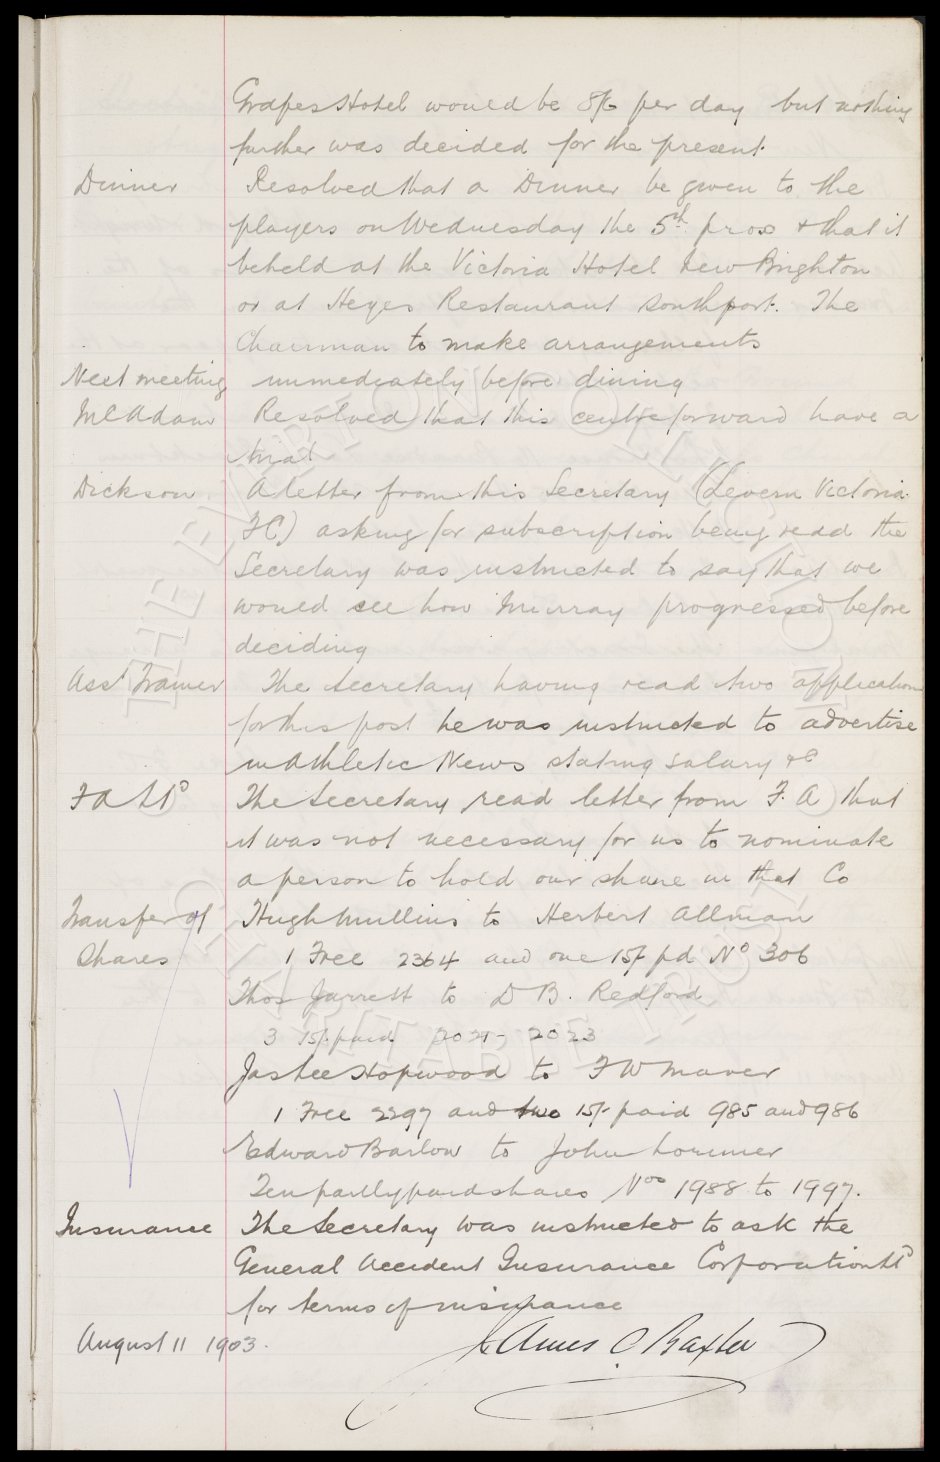 Grapes Hotel would be 8/6 per day but nothing
further was decided for the present.
Dinner Resolved that a Dinner be given to the
players on Wednesday the 5th prox & that it
be held at the Victoria Hotel New Brighton
or at Heyes Restaurant Southport. The
Chairman to make arrangements
Next meeting immediately before dining
McAdam Resolved that this centre forward have a
trial
Dickson A letter from this Secretary (Levern Victoria
FC) asking for subscription being read the
Secretary was instructed to say that we
would see how Murray progressed before
deciding
Asst Trainer The Secretary having read two applications
for this post he was instructed to advertise
in Athletic News stating salary &c
FA Ltd The Secretary read letter from F.A that
it was not necessary for us to nominate
a person to hold our share in that Co
Transfer of Hugh Mullins to Herbert Allman
Shares 1 Free 2364 and one 15/- pd No 306
Thos Jarrett to D B. Redford
3 15/- paid 2021 - 2023
Jas Lee Hopwood to F W Maver
1 Free 2297 and two 15/- paid 985 and 986
Edward Barlow to John Lorimer
Ten partly paid shares Nos 1988 to 1997.
Insurance The Secretary was instructed to ask the
General Accident Insurance Corporation Ltd
for terms of insurance
August 11 1903. James C Baxter
THE EVERTON COLLECTION
CHARITABLE TRUST